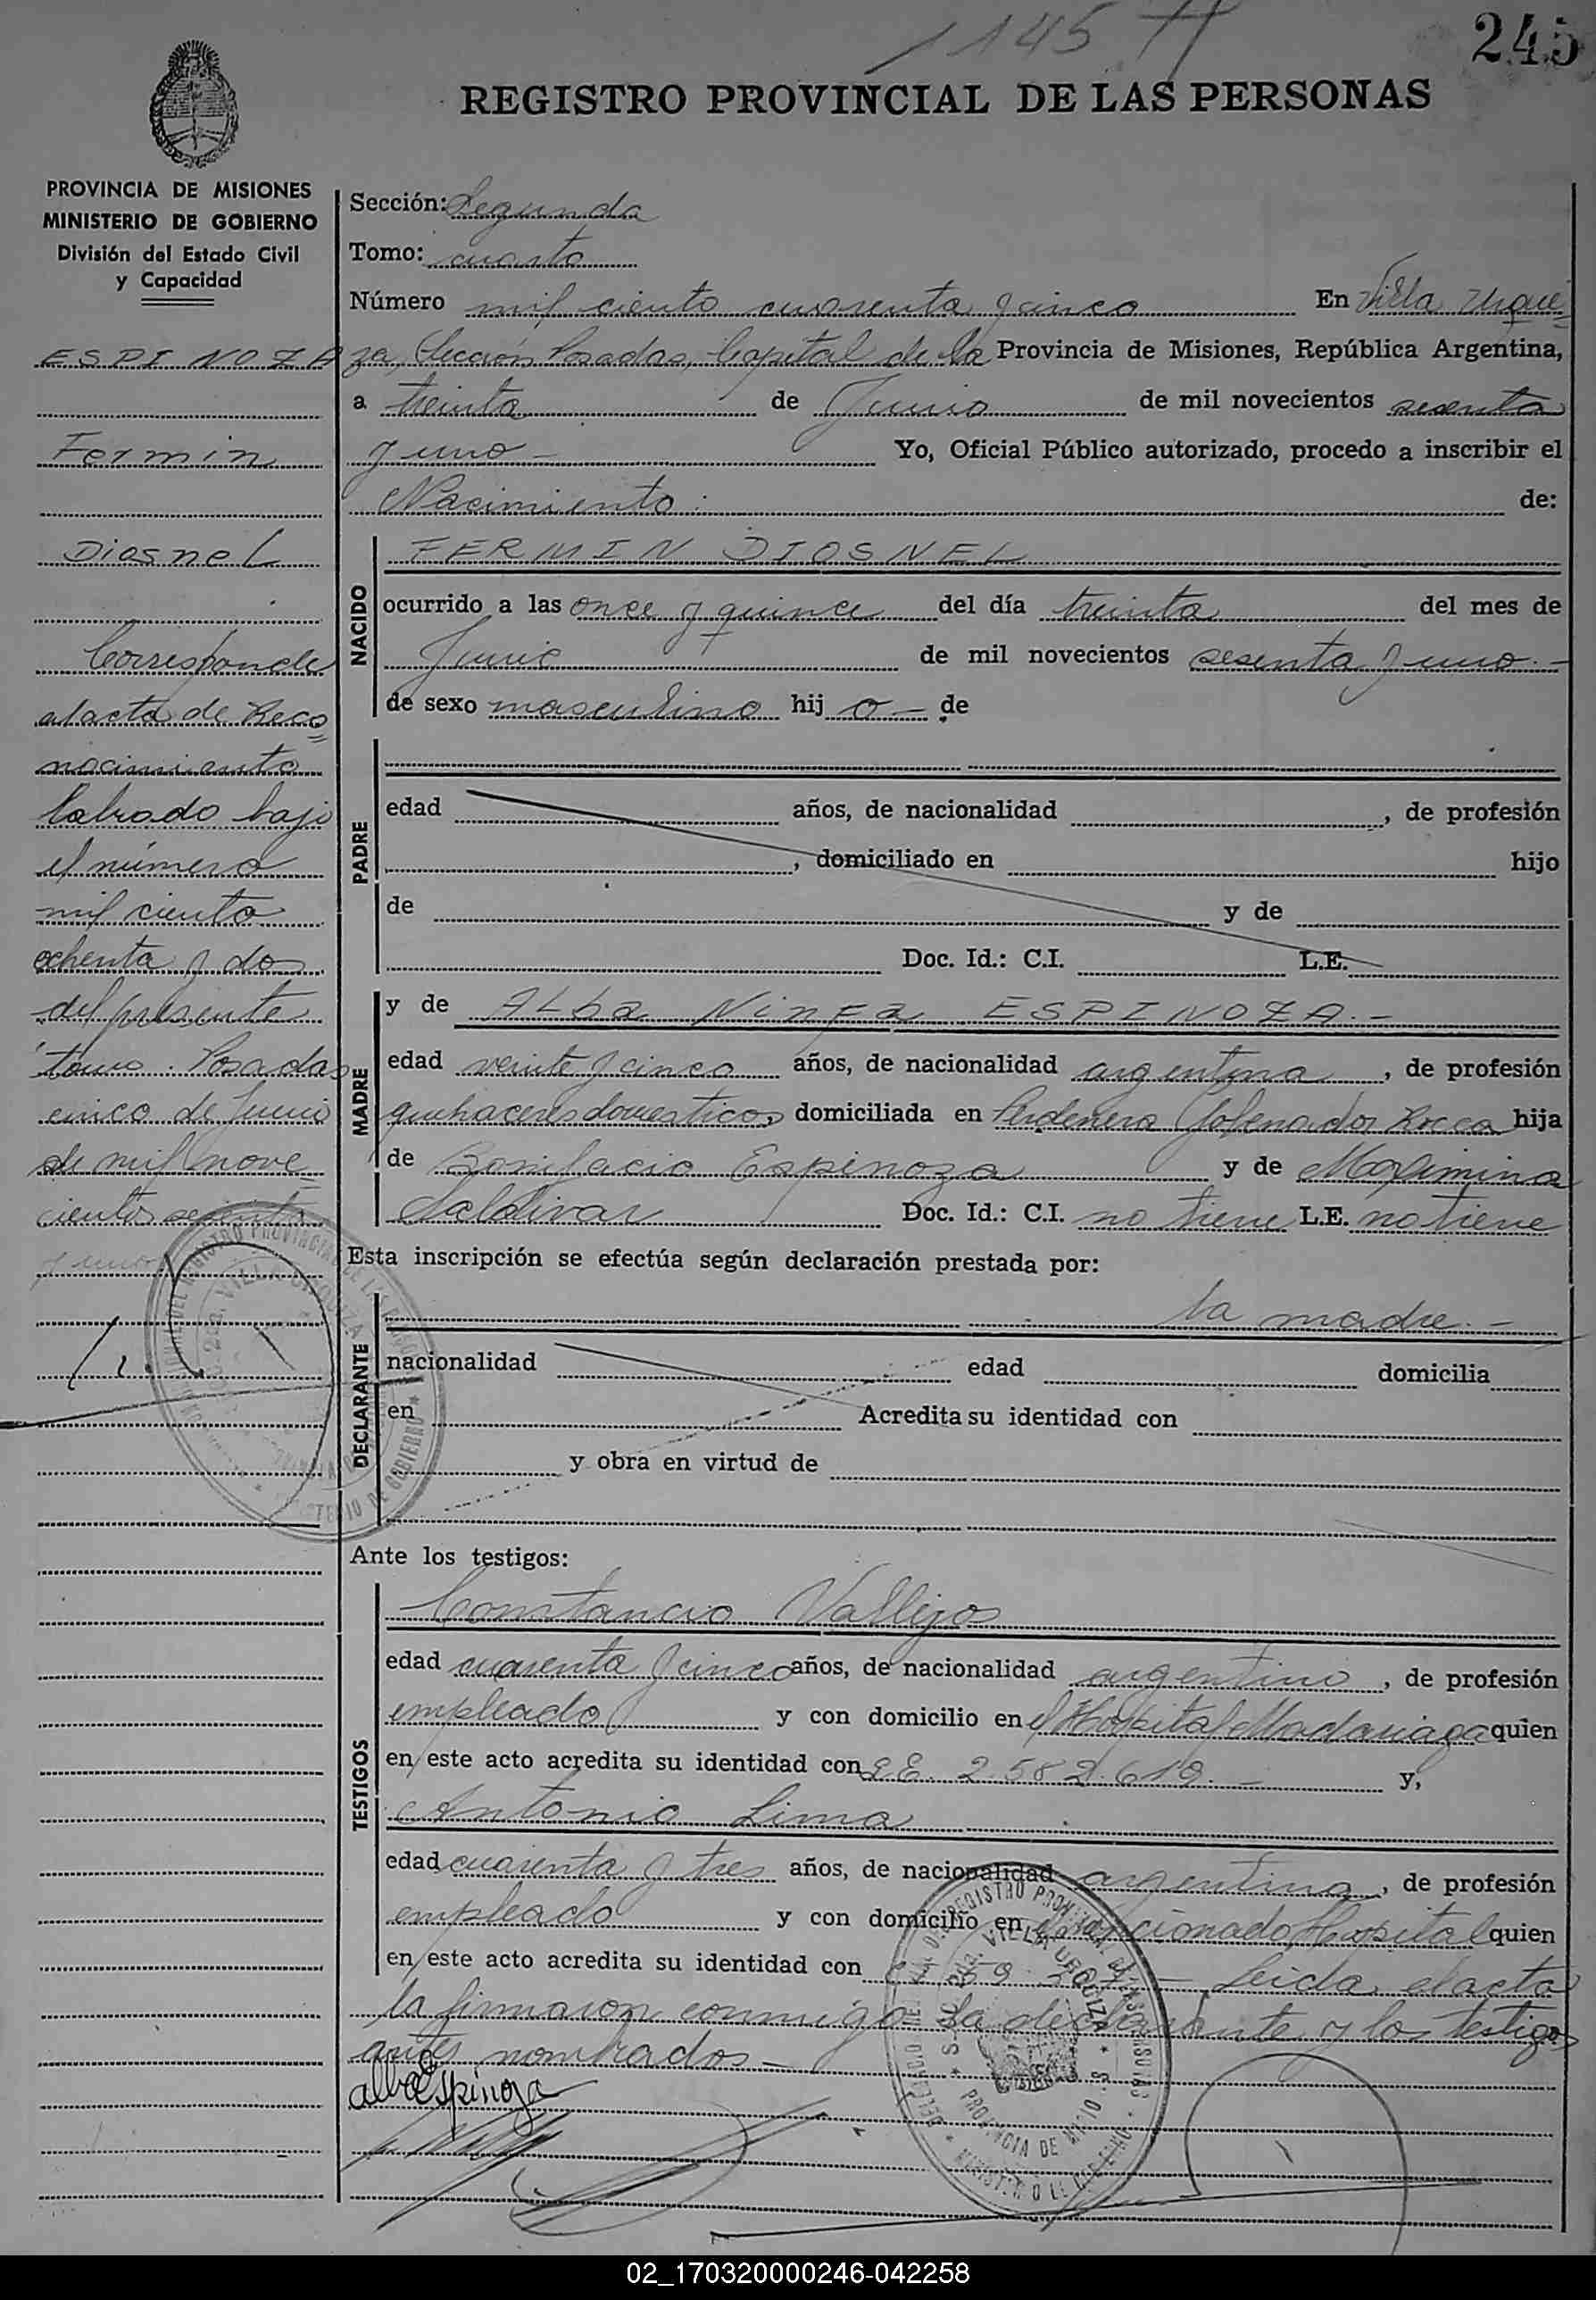 1145 H
245
REGISTRO PROVINCIAL DE LAS PERSONAS
PROVINCIA DE MISIONES
MINISTERIO DE GOBIERNO
División del Estado Civil
y Capacidad
ESPINOZA
Fermin
Diosnel
Corresponde
al acta de Reco
nocimiento
labrado bajo
el número
mil ciento
ochenta y dos
del presente
tomo. Posadas
cinco de Junio
de mil nove
cientos sesenta
y uno
Sección: Segunda
Tomo: cuarto
Número mil ciento cuarenta y cinco En Villa Urqui
za, Sección Posadas, Capital de la Provincia de Misiones, República Argentina,
a treinta de Junio de mil novecientos sesenta
y uno - Yo, Oficial Público autorizado, procedo a inscribir el
Nacimiento de:
NACIDO
FERMIN DIOSNEL
ocurrido a las once y quince del día treinta del mes de
Junio de mil novecientos sesenta y uno.-
de sexo masculino hij o - de
PADRE
edad años, de nacionalidad , de profesión
, domiciliado en hijo
de y de
Doc. Id.: C.I. L.E.
MADRE
y de Alba Ninfa ESPINOZA.-
edad veinte y cinco años, de nacionalidad argentina, de profesión
quehaceres domesticos, domiciliada en Gobernador Rocca hija
de Bonifacio Espinoza y de Maximina
Saldivar Doc. Id.: C.I. no tiene L.E. no tiene
Esta inscripción se efectúa según declaración prestada por:
DECLARANTE
la madre.-
nacionalidad edad domicilia
en Acredita su identidad con
y obra en virtud de
Ante los testigos:
TESTIGOS
Constancio Vallejos
edad cuarenta y cinco años, de nacionalidad argentino, de profesión
empleado y con domicilio en el Hospital Madariaga quien
en este acto acredita su identidad con L.E. 2.582.619.- y,
Antonio Lima
edad cuarenta y tres años, de nacionalidad argentina, de profesión
empleado y con domicilio en Hospital quien
en este acto acredita su identidad con - Leida el acta
la firmaron conmigo la declarante y los testigos
antes nombrados -
alba Espinoza
02_170320000246-042258